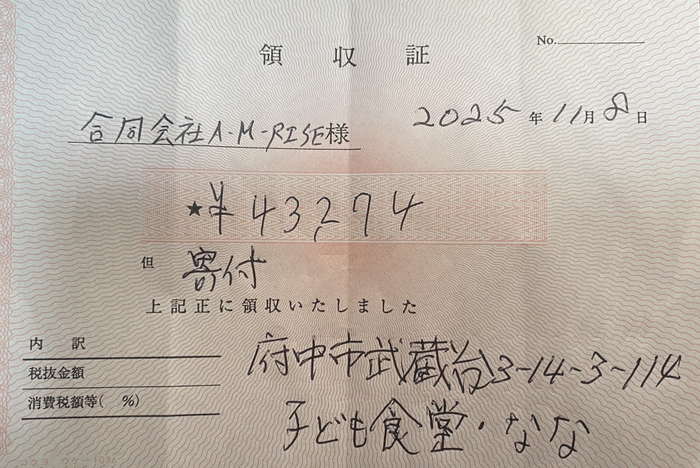 領収証
No.
合同会社A-M-RISE様
2025年11月8日
★¥43,274
但 寄付
上記正に領収いたしました
内訳
税抜金額
消費税額等( %)
府中市武蔵台3-14-3-114
子ども食堂・なな